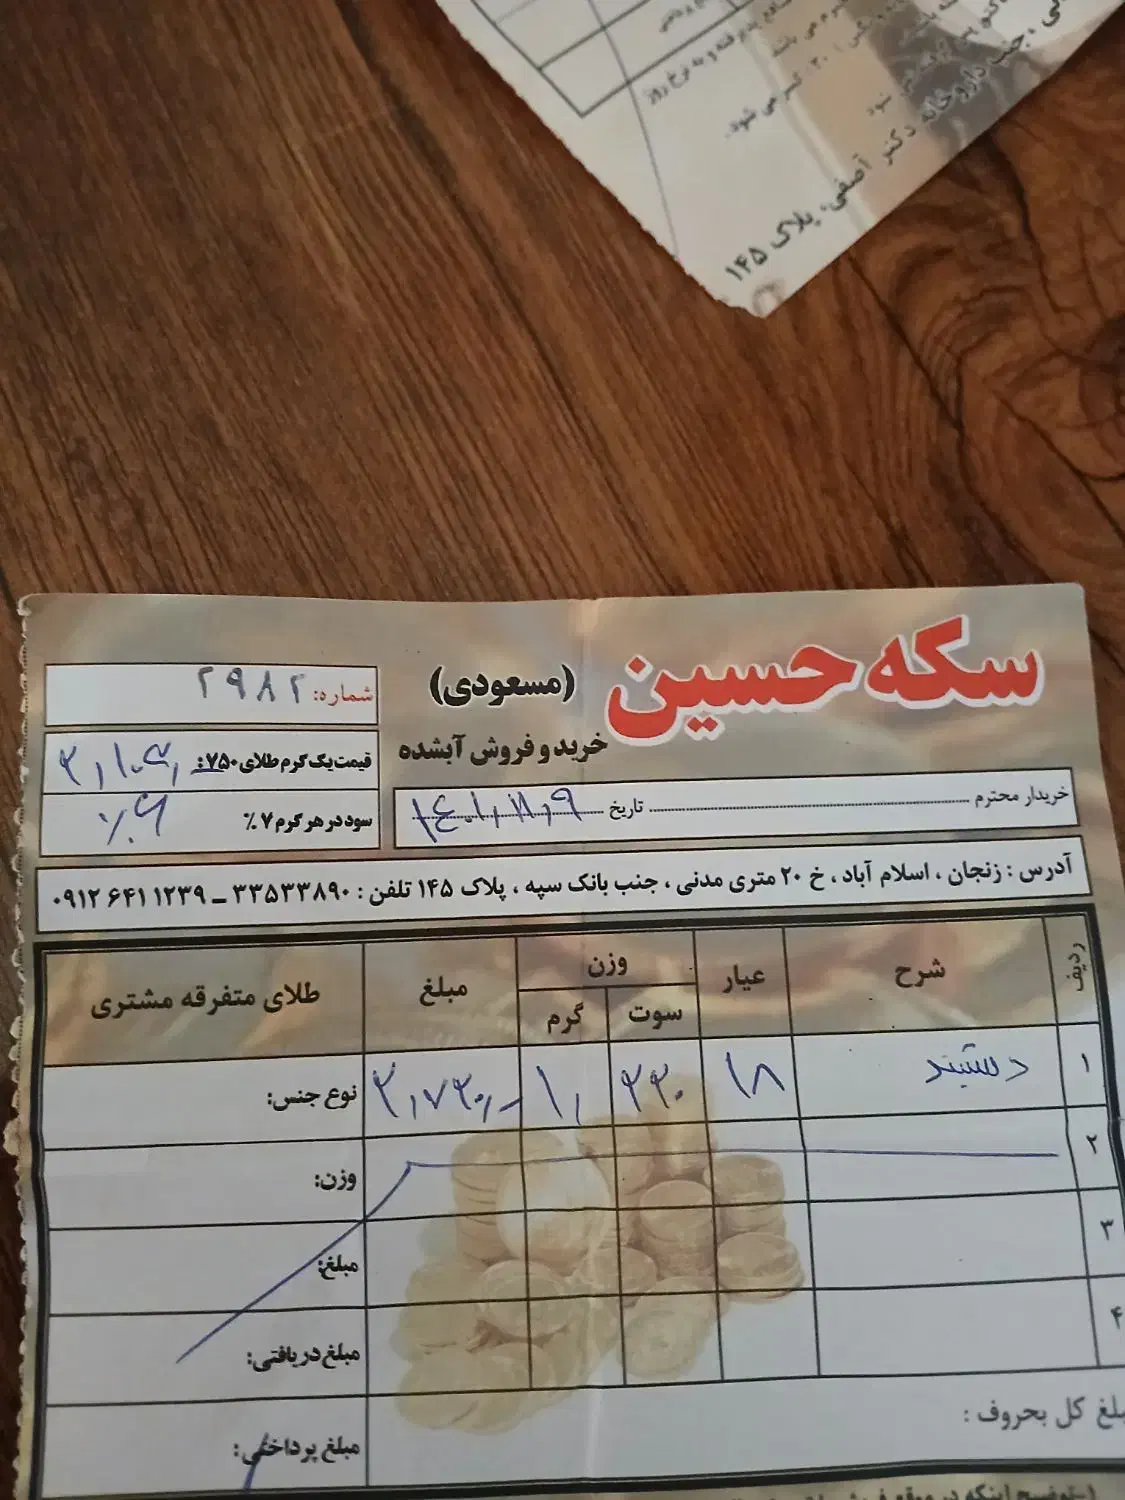 دکتر آصفی، پلاک ۱۴۵
سکه حسین
(مسعودی)
خرید و فروش آبشده
شماره: ۲۹۸۲
قیمت یک گرم طلای ۷۵۰:
سود در هر گرم ۷ ٪ ٪۶
خریدار محترم ........ تاریخ ۱۴۰۱,۱۱,۹
آدرس : زنجان ، اسلام آباد ، خ ۲۰ متری مدنی ، جنب بانک سپه ، پلاک ۱۴۵ تلفن : ۳۳۵۳۳۸۹۰ ـ ۰۹۱۲۶۴۱۱۲۳۹
ردیف شرح عیار وزن مبلغ طلای متفرقه مشتری
سوت گرم
۱ دستبند ۱۸ ۳۳۰ ۱, نوع جنس:
۲ وزن:
۳ مبلغ:
۴ مبلغ دریافتی:
کل بحروف :
مبلغ پرداختی: